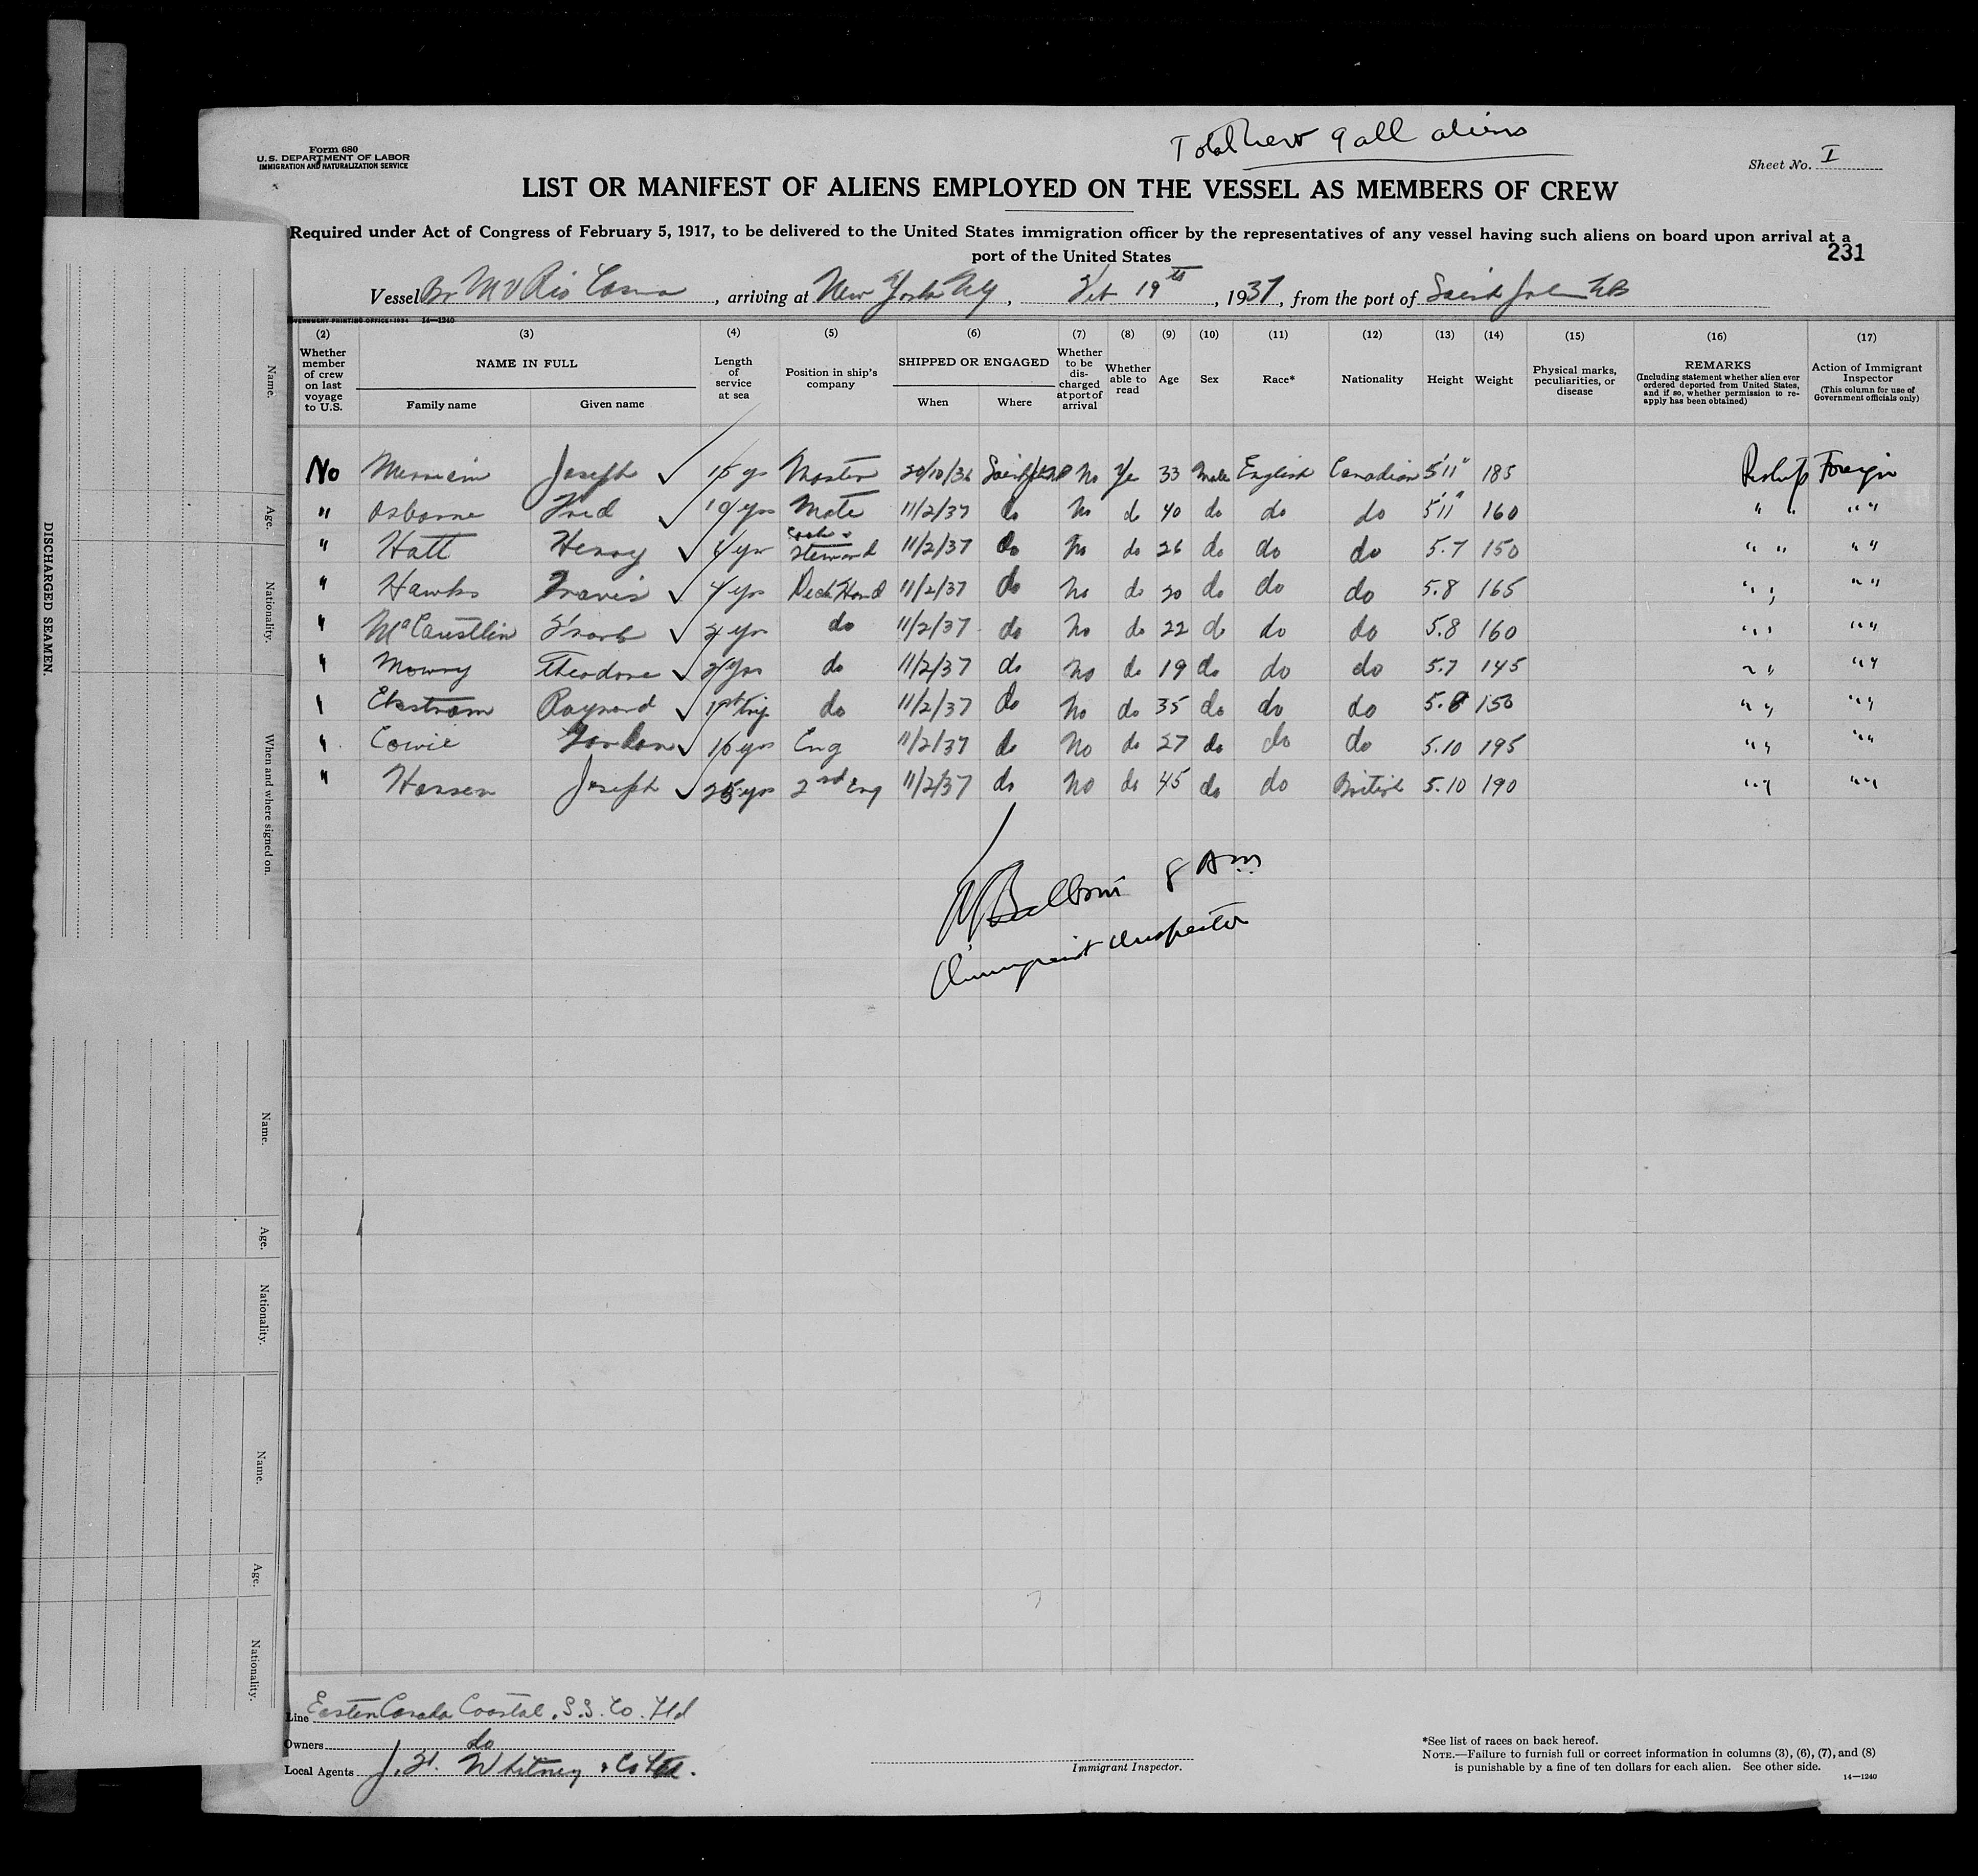 Total crew 9 all aliens
Form 680
U.S. DEPARTMENT OF LABOR
IMMIGRATION AND NATURALIZATION SERVICE
Sheet No. I
LIST OR MANIFEST OF ALIENS EMPLOYED ON THE VESSEL AS MEMBERS OF CREW
Required under Act of Congress of February 5, 1917, to be delivered to the United States immigration officer by the representatives of any vessel having such aliens on board upon arrival at a
port of the United States
231
Vessel Br M V Rio Casma, arriving at New York NY, Feb 19th, 1937, from the port of Saint John NB
GOVERNMENT PRINTING OFFICE: 1934 14—1240
(2) (3) (4) (5) (6) (7) (8) (9) (10) (11) (12) (13) (14) (15) (16) (17)
Whether member of crew on last voyage to U.S.
NAME IN FULL
Family name
Given name
Length of service at sea
Position in ship's company
SHIPPED OR ENGAGED
When
Where
Whether to be discharged at port of arrival
Whether able to read
Age
Sex
Race*
Nationality
Height
Weight
Physical marks, peculiarities, or disease
REMARKS
(Including statement whether alien ever ordered deported from United States, and if so, whether permission to re-apply has been obtained)
Action of Immigrant Inspector
(This column for use of Government officials only)
No Joseph ✓ 15 yr Master 20/10/36 Saint John No Yes 33 Male English Canadian 5'11" 185 Foreign
" Osborne Fred ✓ 10 yrs Mate 11/2/37 do No do 40 do do do 5'11" 160 " " " "
" Hatt Henry ✓ 4 yr Cook & Steward 11/2/37 do No do 26 do do do 5.7 150 " " " "
" Hawks Travis ✓ 4 yrs Deck Hand 11/2/37 do No do 20 do do do 5.8 165 " " " "
" McCaustlin Frank ✓ 2 yrs do 11/2/37 do No do 22 do do do 5.8 160 " " " "
" Mowry Theodore ✓ 2 yrs do 11/2/37 do No do 19 do do do 5.7 145 " " " "
" Ekstrom Raymond ✓ 1st trip do 11/2/37 do No do 35 do do do 5.8 150 " " " "
" Cowie Gordon ✓ 16 yrs Eng 11/2/37 do No do 27 do do do 5.10 195 " " " "
" Hansen Joseph ✓ 25 yrs 2nd Eng 11/2/37 do No do 45 do do British 5.10 190 " " " "
8 AM
Immigrant Inspector
Line Eastern Canada Coastal. S.S. Co. Ltd
Owners do
Local Agents J. H. Whitney & Co Ltd.
Immigrant Inspector.
*See list of races on back hereof.
NOTE.—Failure to furnish full or correct information in columns (3), (6), (7), and (8)
is punishable by a fine of ten dollars for each alien. See other side.
14—1240
DISCHARGED SEAMEN.
Name.
Age.
Nationality.
When and where signed on.
Name.
Age.
Nationality.
Name.
Age.
Nationality.